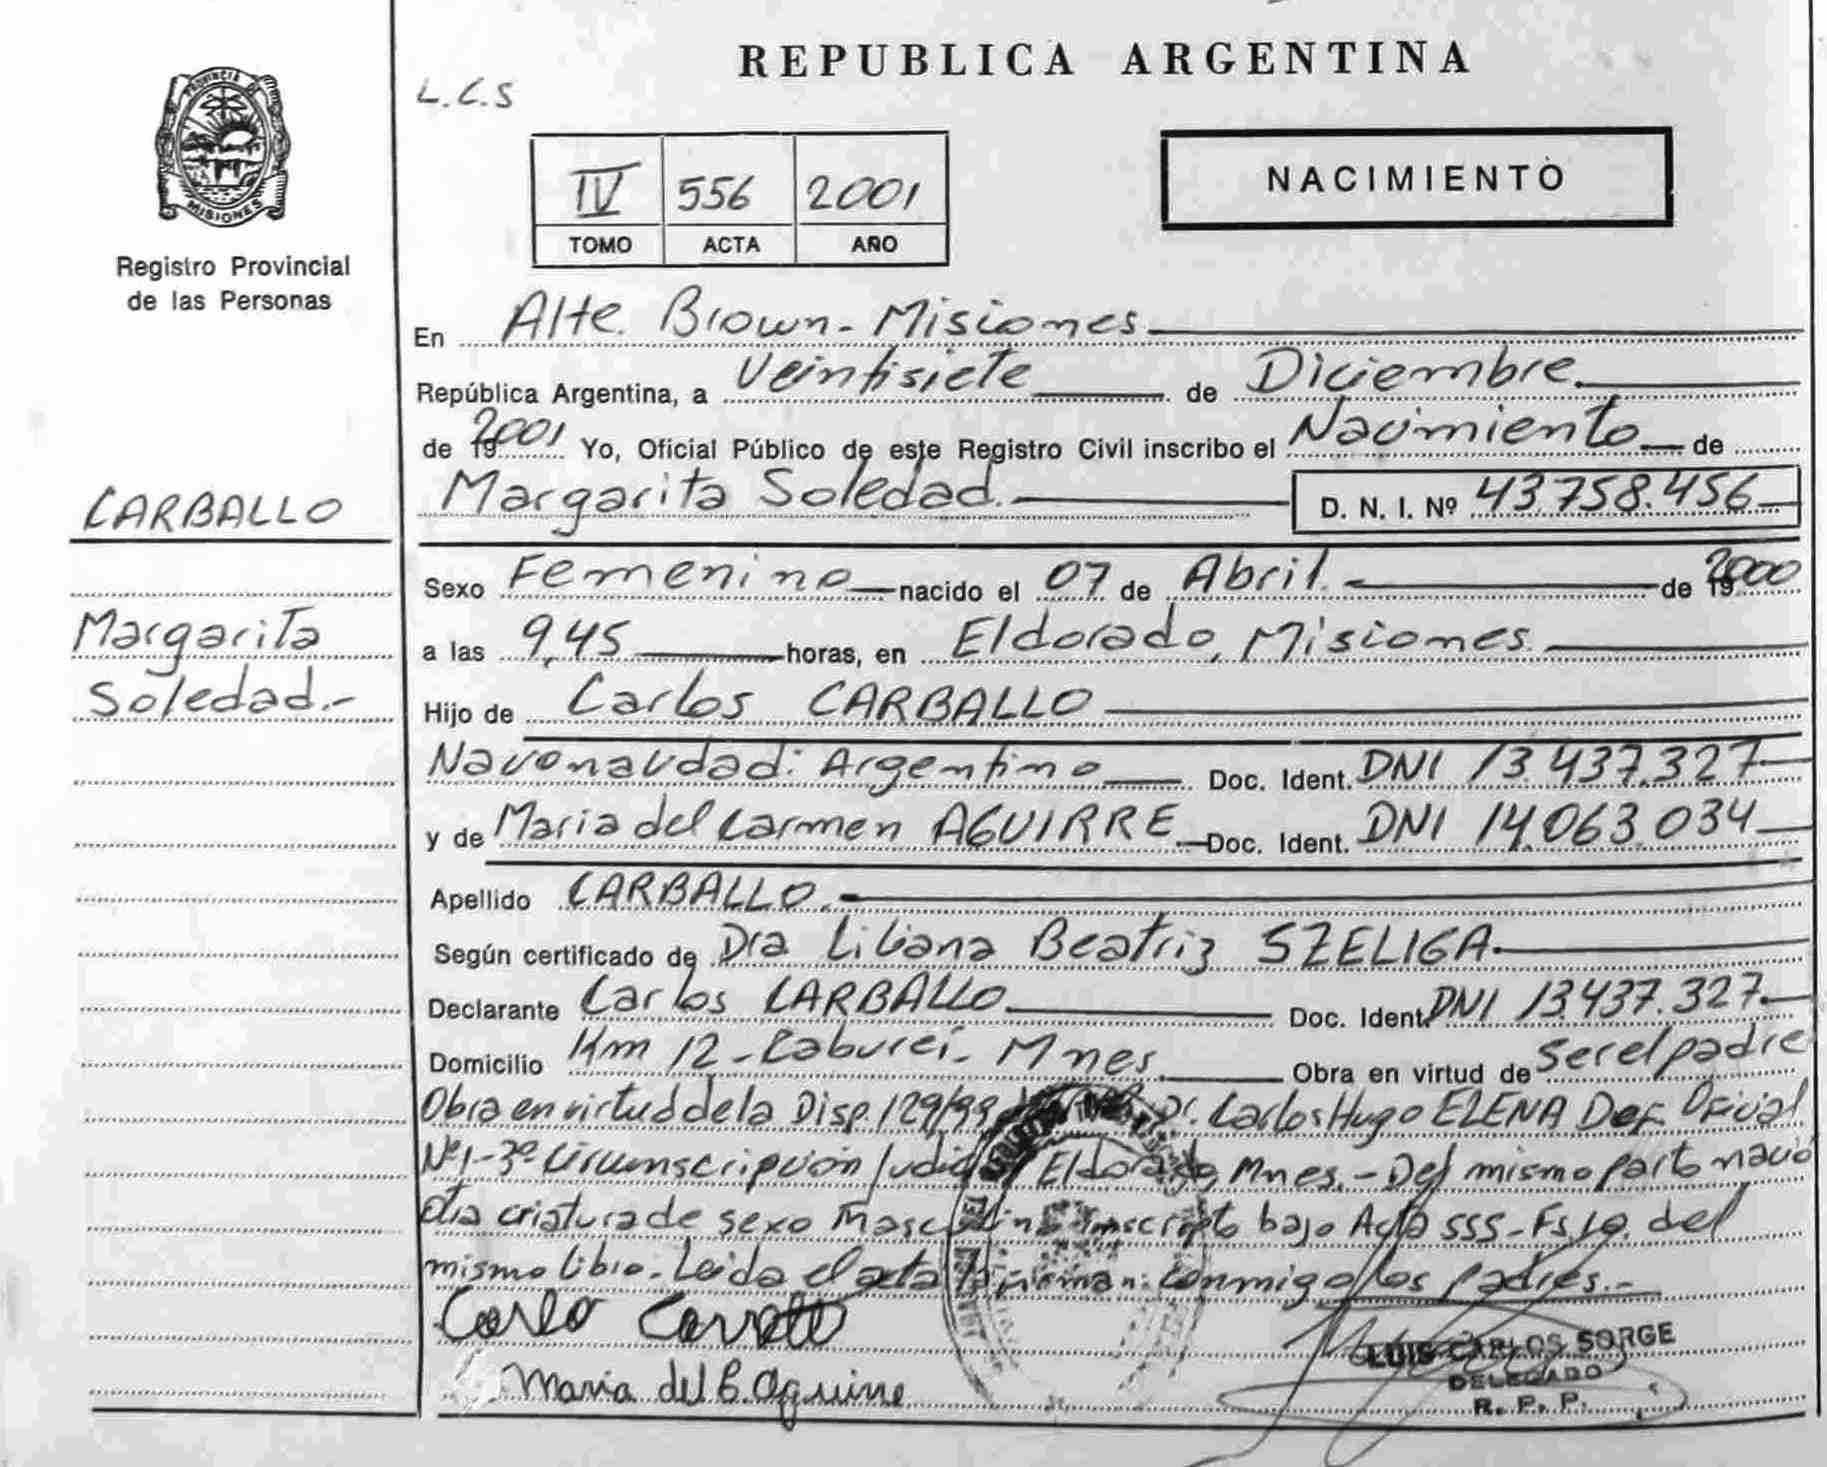 REPUBLICA ARGENTINA
L.C.S
PROVINCIA DE
MISIONES
Registro Provincial
de las Personas
IV 556 2001
TOMO ACTA AÑO
NACIMIENTO
En Alte. Brown - Misiones
República Argentina, a Veintisiete de Diciembre
de 2001 Yo, Oficial Público de este Registro Civil inscribo el Nacimiento de
CARBALLO
Margarita Soledad. D. N. I. Nº 43.758.456
Sexo Femenino nacido el 07 de Abril de 2000
Margarita
Soledad.-
a las 9,45 horas, en Eldorado, Misiones
Hijo de Carlos CARBALLO
Nacionalidad: Argentino Doc. Ident. DNI 13.437.327
y de Maria del Carmen AGUIRRE Doc. Ident. DNI 14.063.034
Apellido CARBALLO.
Según certificado de Dra Liliana Beatriz SZELIGA
Declarante Carlos CARBALLO Doc. Ident. DNI 13.437.327
Domicilio Km 12 - Caburei - Mnes. Obra en virtud de ser el padre
Obra en virtud de la Disp. 129/99 Dr. Carlos Hugo ELENA Def. Oficial
Nº1-3º Circunscripción Judicial Eldorado, Mnes. - Del mismo parto nació
otra criatura de sexo Masculino inscripto bajo Acta 555 - Fs 19. del
mismo libro. Leida el acta la firman: conmigo los padres.-
Carlo
Maria del C. Aguirre
LUIS CARLOS SORGE
DELEGADO
R. P. P.